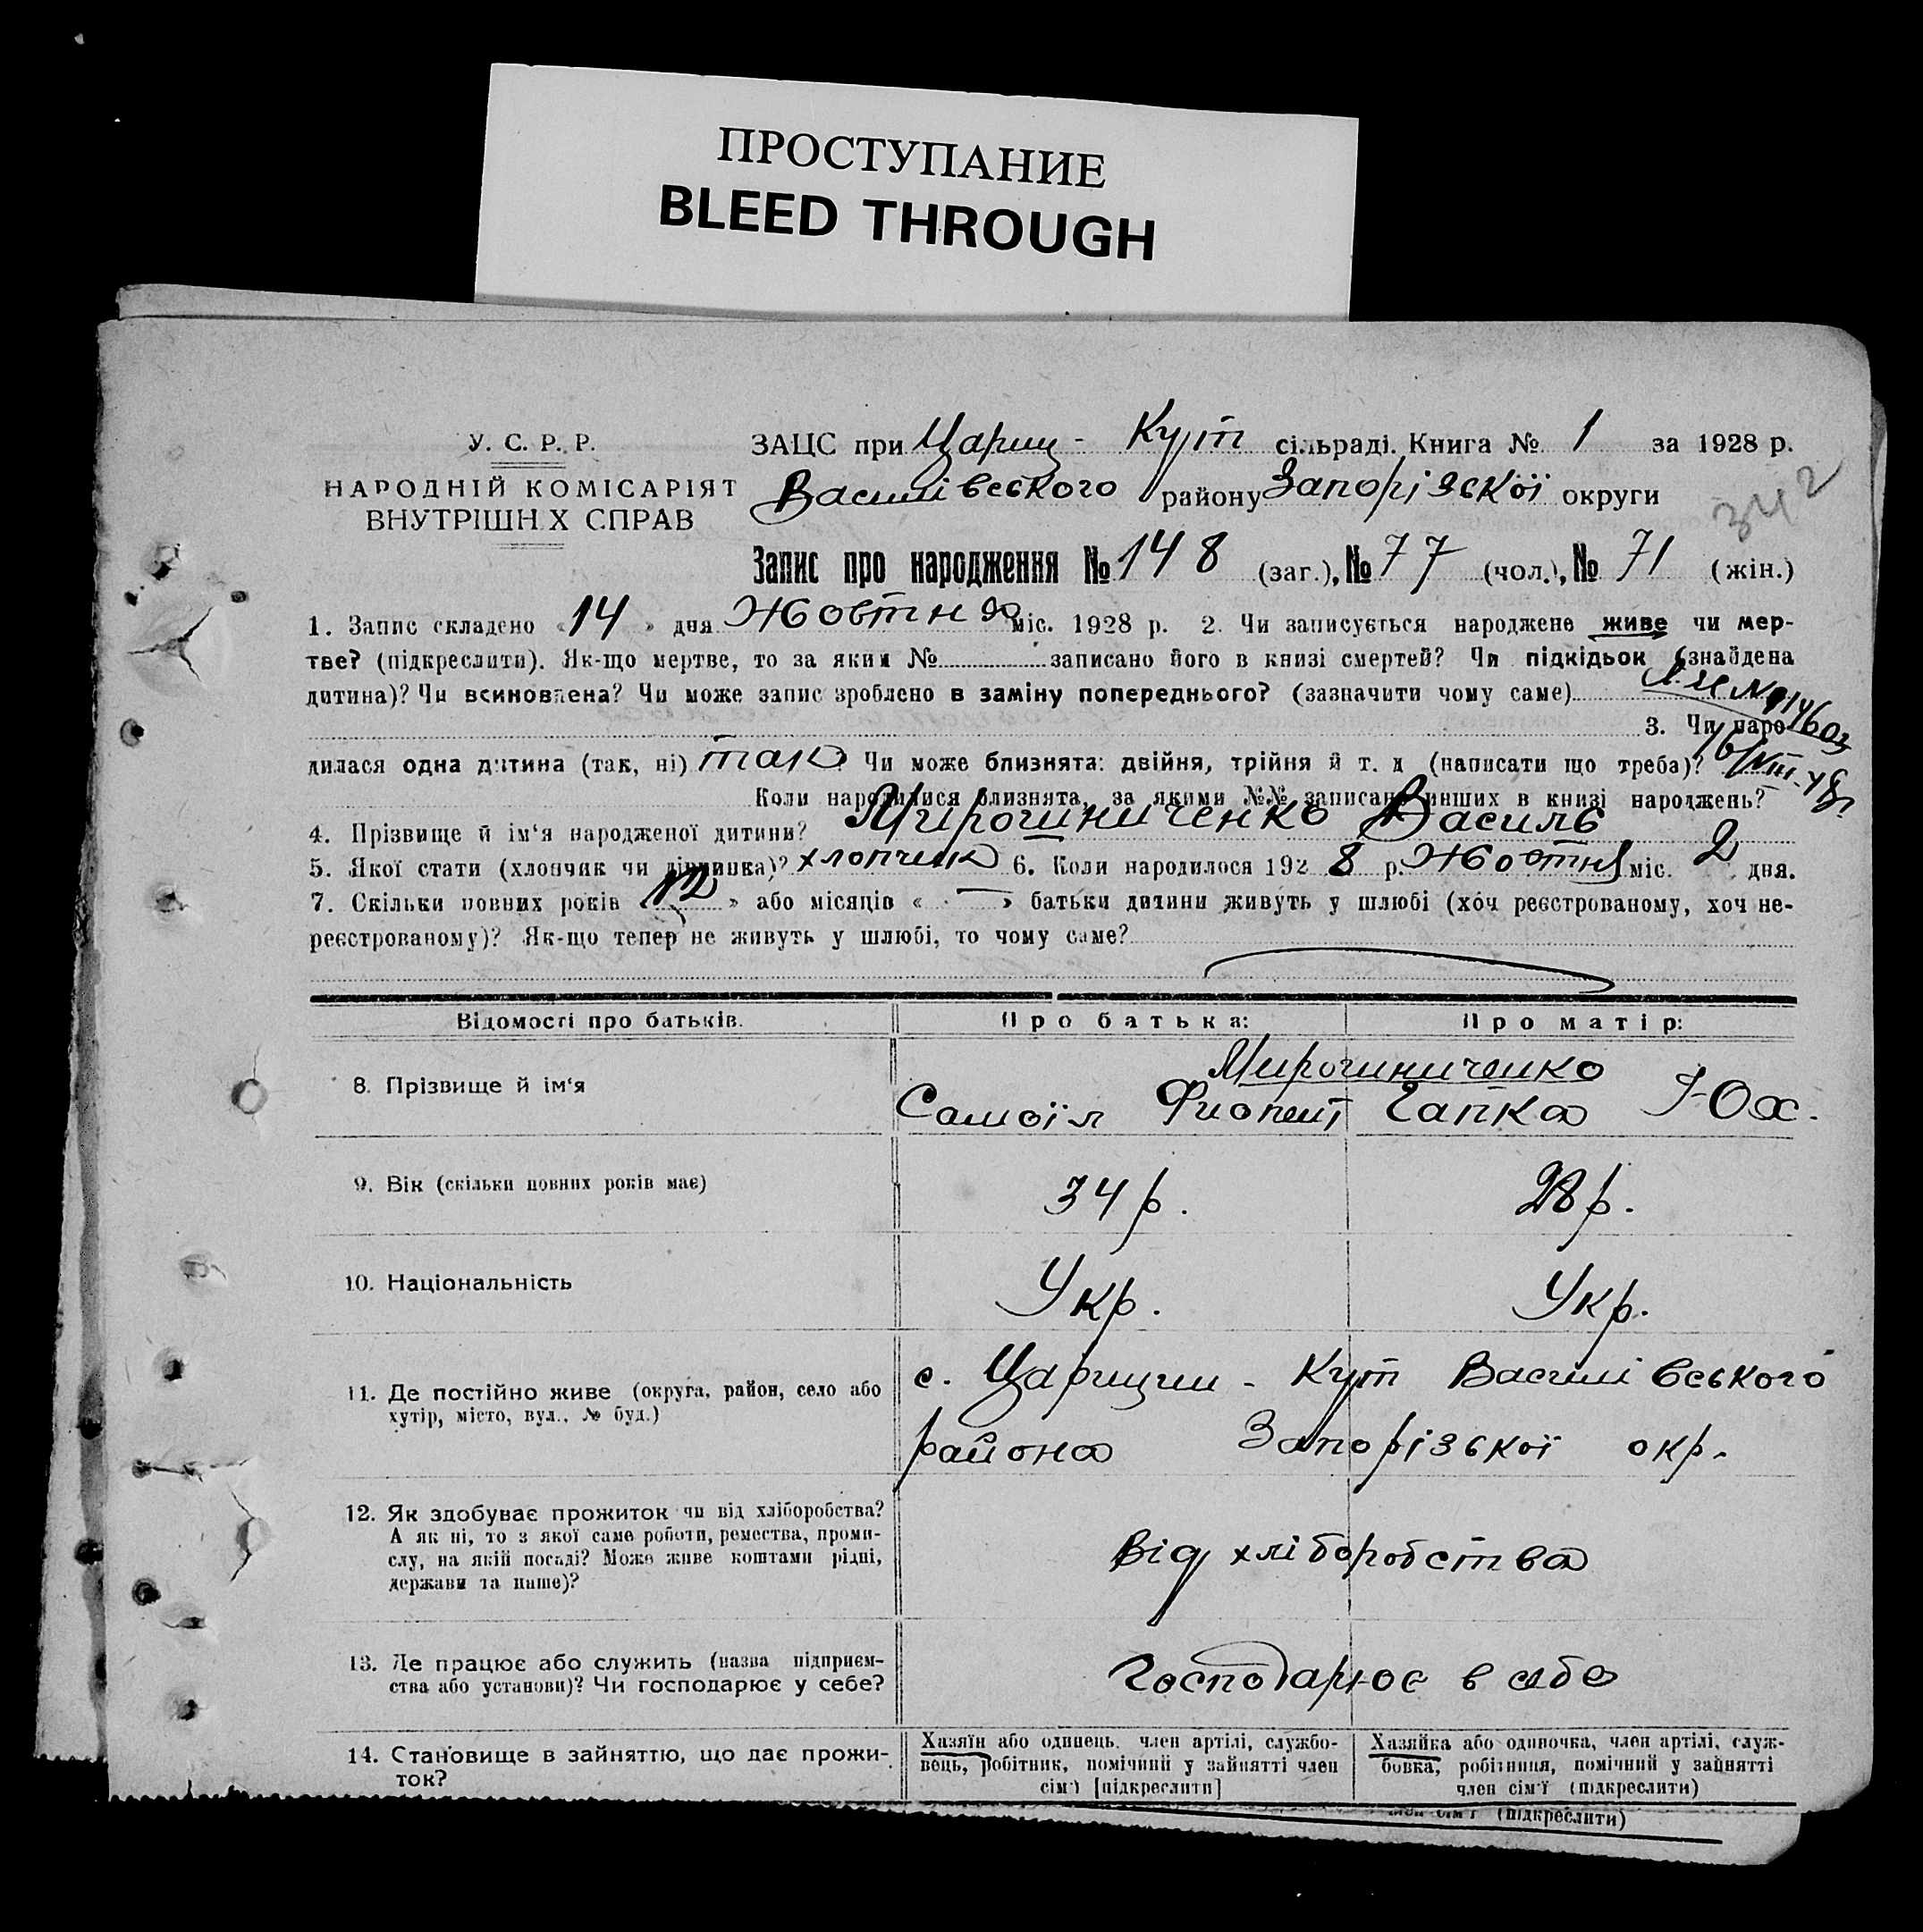 ПРОСТУПАНИЕ
BLEED THROUGH
У. С. Р. Р.
НАРОДНІЙ КОМІСАРІЯТ
ВНУТРІШН Х СПРАВ
ЗАЦС при Цариц - Кут сільраді. Книга № 1 за 1928 р.
Василівського району Запорізької округи
342
Запис про народження № 148 (заг.), № 77 (чол.), № 71 (жін.)
1. Запис складено «14» дня Жовтня міс. 1928 р. 2. Чи записується народжене живе чи мер-
тве? (підкреслити). Як-що мертве, то за яким № записано його в книзі смертей? Чи підкідьок (знайдена
дитина)? Чи всиновлена? Чи може запис зроблено в заміну попереднього? (зазначити чому саме)
3. Чи наро-
дилася одна дитина (так, ні) так Чи може близнята: двійня, трійня й т. д (написати що треба)?
Коли народилися близнята, за якими №№ записано инших в книзі народжень?
4. Прізвище й ім‘я народженої дитини? Мирошниченко Василь
5. Якої стати (хлопчик чи дівчинка)? хлопчик 6. Коли народилося 192 8 р. Жовтня міс. 2 дня.
7. Скільки повних років «12» або місяців « — » батьки дитини живуть у шлюбі (хоч реєстрованому, хоч не-
реєстрованому)? Як-що тепер не живуть у шлюбі, то чому саме?
Відомості про батьків. Про батька: Про матір:
Мирошниченко
8. Прізвище й ім‘я
Самоїл Гапка
9. Вік (скільки повних років має) 34 р. 28 р.
10. Національність Укр. Укр.
11. Де постійно живе (округа, район, село або
хутір, місто, вул., № буд.)
с. Царицин - Кут Василівського
района Запорізької окр.
12. Як здобуває прожиток чи від хліборобства?
А як ні, то з якої саме роботи, ремества, проми-
слу, на якій посаді? Може живе коштами рідні,
держави та инше)?
Від хліборобства
13. Де працює або служить (назва підприєм-
ства або установи)? Чи господарює у себе?
Господарює в себе
14. Становище в зайняттю, що дає прожи-
ток?
Хазяїн або одинець, член артілі, службо-
вець, робітник, помічний у зайнятті член
сім‘ї [підкреслити]
Хазяйка або одиночка, член артілі, служ-
бовка, робітниця, помічний у зайнятті
член сім‘ї (підкреслити)
(підкреслити)